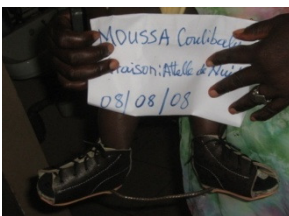 MOUSSA Coulibaly
raison: Attelle de Nuit
08/08/08